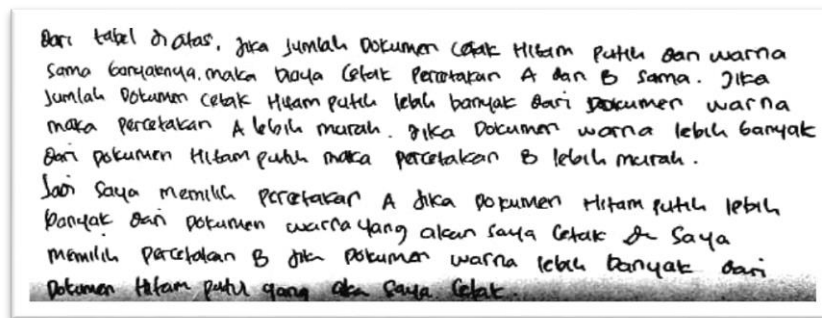 Dari tabel di atas, jika jumlah Dokumen cetak Hitam putih dan warna
sama banyaknya, maka biaya cetak Percetakan A dan B sama. Jika
jumlah Dokumen cetak Hitam putih lebih banyak dari Dokumen warna
maka Percetakan A lebih murah. Jika Dokumen warna lebih banyak
dari Dokumen Hitam putih maka percetakan B lebih murah.
Jadi saya memilih Percetakan A jika Dokumen Hitam putih lebih
banyak dari Dokumen warna yang akan saya cetak saya
memilih Percetakan B jika Dokumen warna lebih banyak dari
Dokumen Hitam putih yang akan saya cetak.